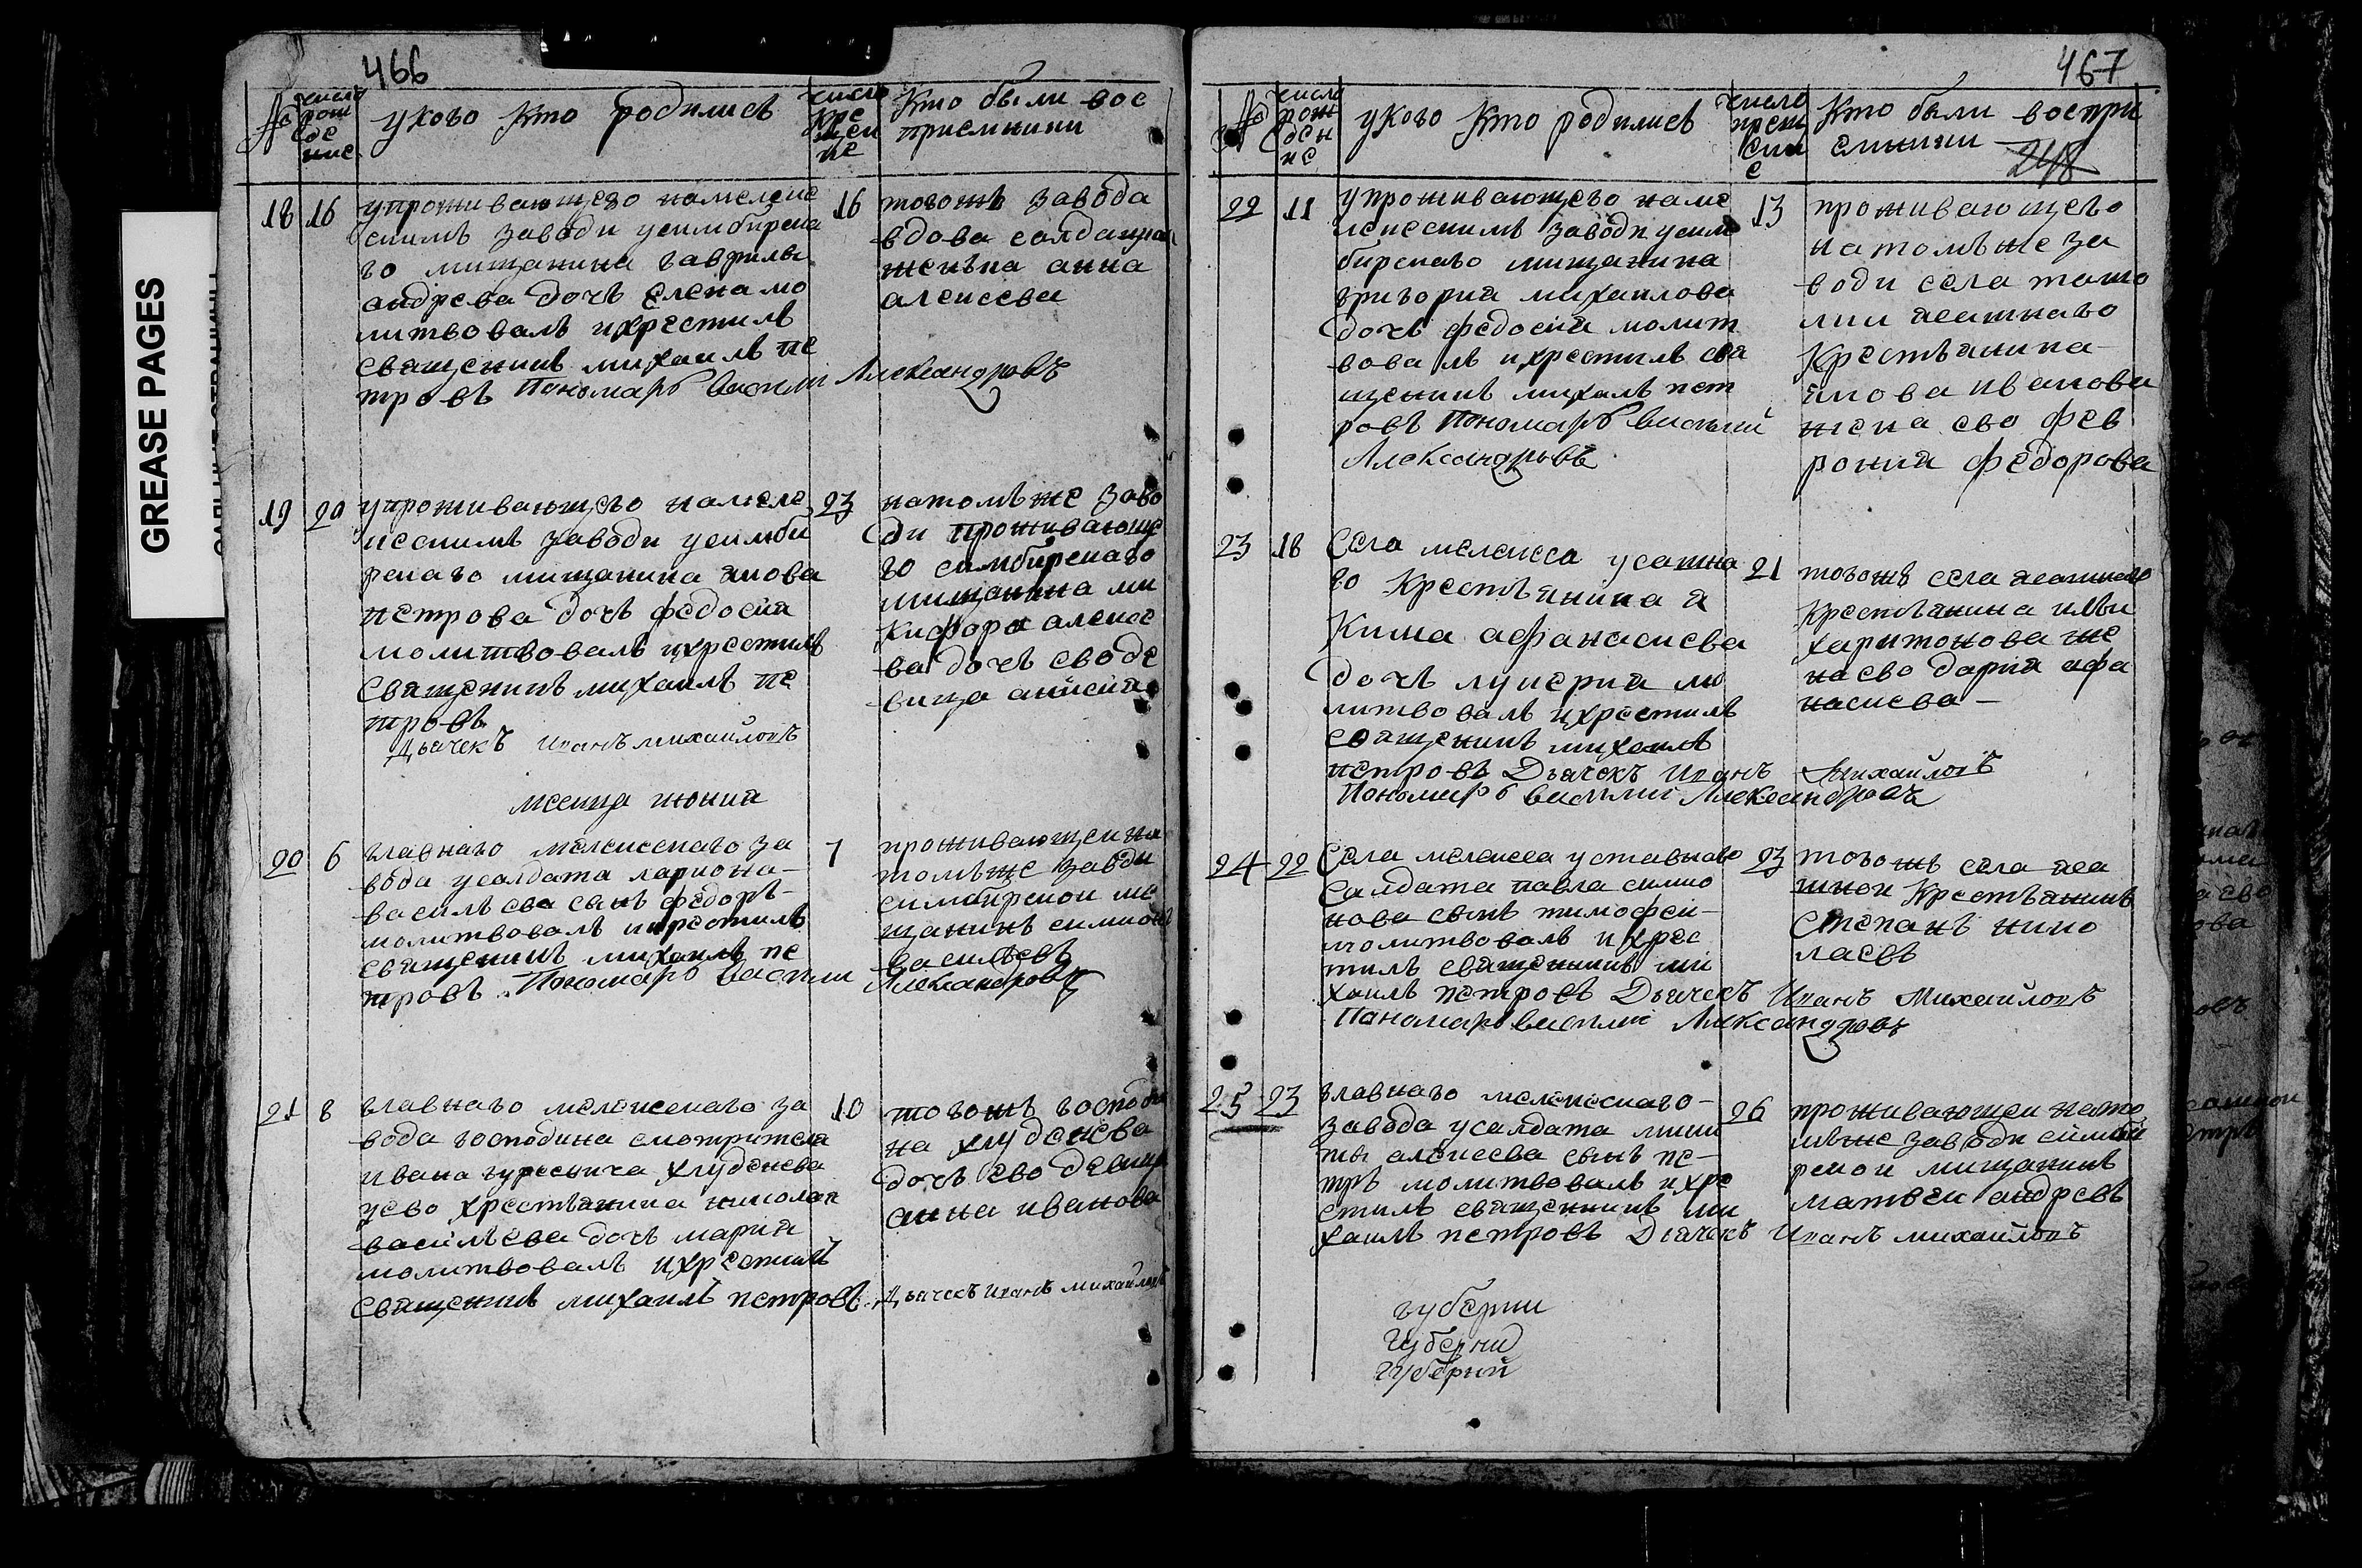 466
№
число
рож
де
ние
у кого кто родились
число
кре
щен
ие
Кто были вос
приемники
18 16
у проживающего на мелеке
скимъ заводи у симбирска
го мищанина гаврилы
андрева дочь Елена мо
литвовалъ и хрестилъ
священникъ михаилъ пе
тровъ Пономарь Василий Александровъ
16
тогожъ завода
вдова салдатска
женъка анна
алексеева
19 20
у проживающего на меле
кескимъ заводи у симби
рскаго мищанина якова
петрова дочь федосия
молитвовалъ и хрестилъ
священникъ михаилъ пе
тровъ
Дьячекъ Иванъ михайловъ
23
на томъ же заво
ди проживающе
го симбирскаго
мищанина ми
кифора алексе
ва дочь ево де
вица анисия
месица июния
20 6
главнаго мелекескаго за
вода у салдата лариона
василъева сынъ федоръ
молитвовалъ и хрестилъ
священникъ михаилъ пе
тровъ Пономарь Василий Александровъ
7
проживающеи на
томъ же заводи
симбирскои ме
щанинъ симионъ
василъевъ
21 8
главнаго мелекескаго за
вода господина смотрителя
ивана гурсевича хлуденева
у ево хрестъянина николая
василъева дочь мария
молитвовалъ и хрестилъ
священникъ михаилъ петровъ Дьячекъ Иванъ Михайловъ
10
тогожъ господи
на хлуденева
дочь ево девица
анна иванова
467
№
число
рож
дени
ие
у кого кто родились
число
крещ
ени
е
Кто были воспри
емники
248
22 11
у проживающего на ме
лекескимъ заводи у сим
бирскаго мищанина
григория михаилова
дочь федосия молит
вовалъ и хрестилъ свя
щенникъ михаилъ пет
ровъ Пономарь Василий
Александровъ
13
проживающего
на томъ же за
води села
ясашнаго
Крестъянина
якова иванова
жена ево фев
рония федорова
23 18
Села мелекеса у сашна
го Крестъянина я
кима афанасиева
дочь лукерия мо
литвовалъ и хрестилъ
священникъ михаилъ
петровъ Дьячекъ Иванъ Михайловъ
Пономарь Василий Александровъ
21
тогожъ села ясашнаго
Крестъянина илъи
харитонова же
на ево дария афа
насиева
24 22
Села мелекеса у ставнаго
Салдата павла симио
нова сынъ тимофеи
молитвовалъ и хрес
тилъ священникъ ми
хаилъ петровъ Дьячекъ Иванъ Михайловъ
Панамарь василий Александровъ
23
тогожъ села яса
шнои Крестъянинъ
Степанъ нико
лаевъ
25 23
главнаго мелекескаго
завода у салдата ники
ты алексеева сынъ пе
тръ молитвовалъ и хре
стилъ священникъ ми
хаилъ петровъ Дьячекъ Иванъ михайловъ
26
проживающеи на то
мъ же заводи симби
рскои мищанинъ
матвеи андревъ
губернии
губернии
губерний
GREASE PAGES